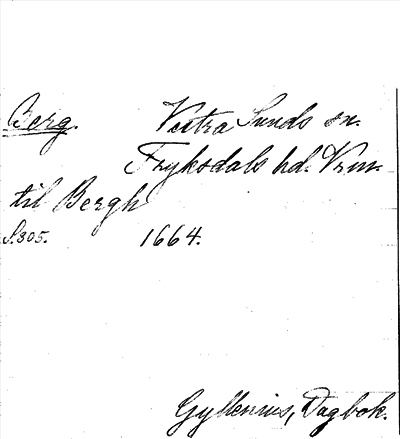 Berg. Västra Sunds sn.
Fryksdals hd. Vrm.
til Bergh
S.305. 1664.
Gyllenius, Dagbok.